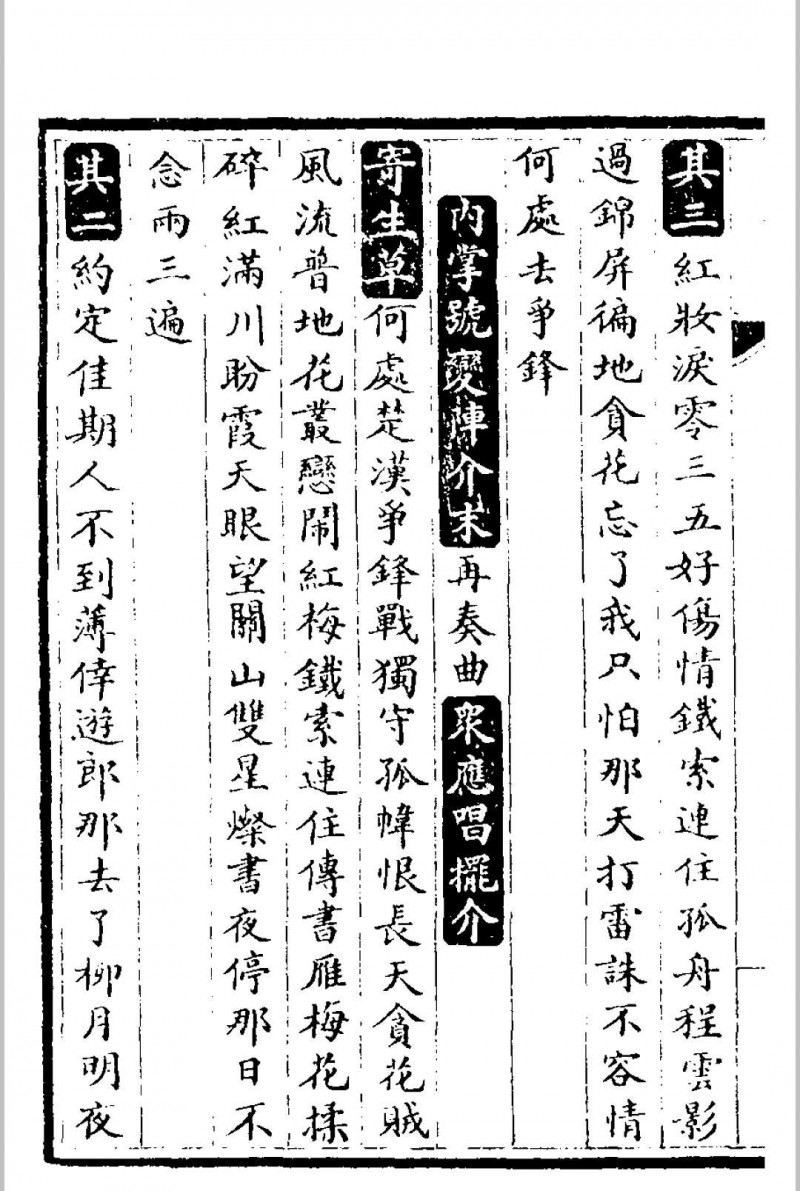 其三紅妝淚零三五好傷情鐵索連住孤舟程雲影
過錦屏徧地貪花忘了我只怕那天打雷誅不容情
何處去爭鋒
內掌號變陣介末再奏曲衆應唱擺介
寄生草何處楚漢爭鋒戰獨守孤幃恨長天貪花賊
風流普地花叢戀鬧紅梅鐵索連住傳書雁梅花揉
碎紅滿川盼霞天眼望關山雙星燦書夜停那日不
念兩三遍
其二約定佳期人不到薄倖遊郎那去了柳月明夜